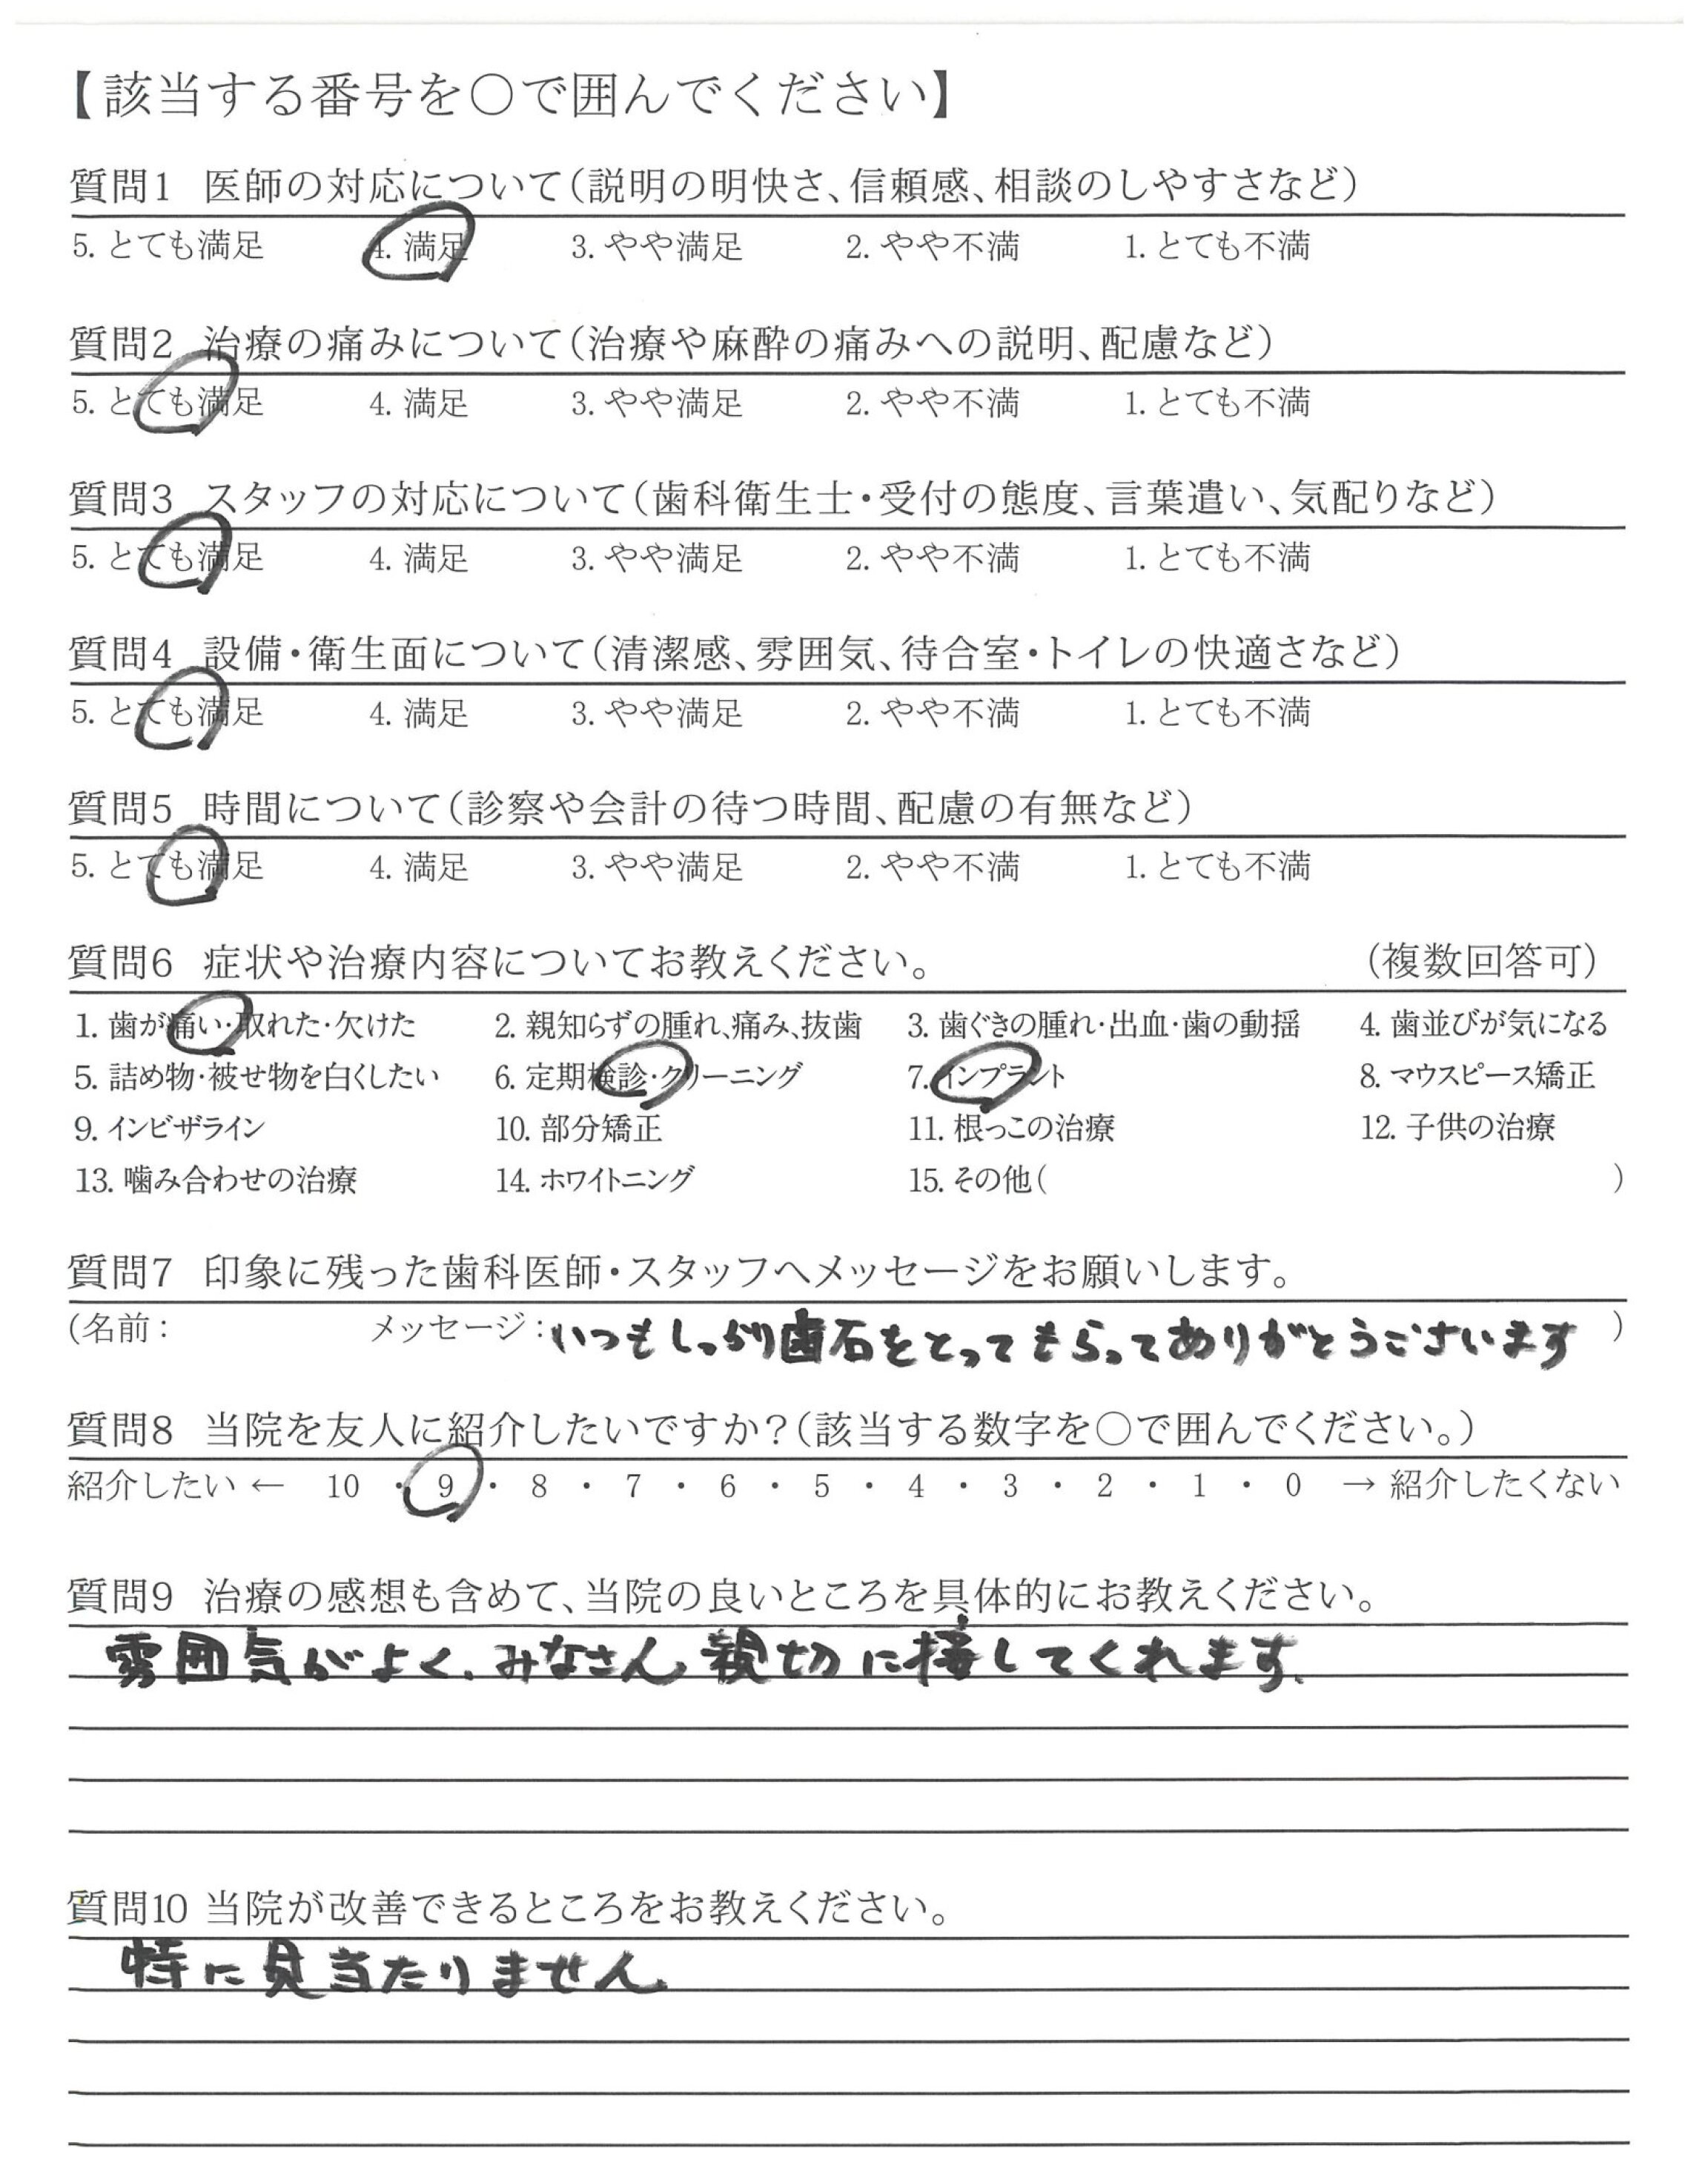 【該当する番号を○で囲んでください】
質問1 医師の対応について（説明の明快さ、信頼感、相談のしやすさなど）
5. とても満足 4. 満足 3. やや満足 2. やや不満 1. とても不満
質問2 治療の痛みについて（治療や麻酔の痛みへの説明、配慮など）
5. とても満足 4. 満足 3. やや満足 2. やや不満 1. とても不満
質問3 スタッフの対応について（歯科衛生士・受付の態度、言葉遣い、気配りなど）
5. とても満足 4. 満足 3. やや満足 2. やや不満 1. とても不満
質問4 設備・衛生面について（清潔感、雰囲気、待合室・トイレの快適さなど）
5. とても満足 4. 満足 3. やや満足 2. やや不満 1. とても不満
質問5 時間について（診察や会計の待つ時間、配慮の有無など）
5. とても満足 4. 満足 3. やや満足 2. やや不満 1. とても不満
質問6 症状や治療内容についてお教えください。 （複数回答可）
1. 歯が痛い・取れた・欠けた 2. 親知らずの腫れ、痛み、抜歯 3. 歯ぐきの腫れ・出血・歯の動揺 4. 歯並びが気になる
5. 詰め物・被せ物を白くしたい 6. 定期検診・クリーニング 7. インプラント 8. マウスピース矯正
9. インビザライン 10. 部分矯正 11. 根っこの治療 12. 子供の治療
13. 噛み合わせの治療 14. ホワイトニング 15. その他（ ）
質問7 印象に残った歯科医師・スタッフへメッセージをお願いします。
（名前： メッセージ：いつもしっかり歯石をとってもらってありがとうございます ）
質問8 当院を友人に紹介したいですか？（該当する数字を○で囲んでください。）
紹介したい ← 10 ・ 9 ・ 8 ・ 7 ・ 6 ・ 5 ・ 4 ・ 3 ・ 2 ・ 1 ・ 0 → 紹介したくない
質問9 治療の感想も含めて、当院の良いところを具体的にお教えください。
雰囲気がよく、みなさん親切に接してくれます。
質問10 当院が改善できるところをお教えください。
特に見当たりません。